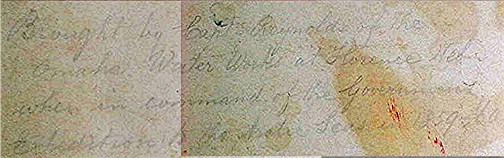 Brought by Capt Reynolds of the
Omaha Water Works at Florence Neb.
when in command of the Government
Expedition to the